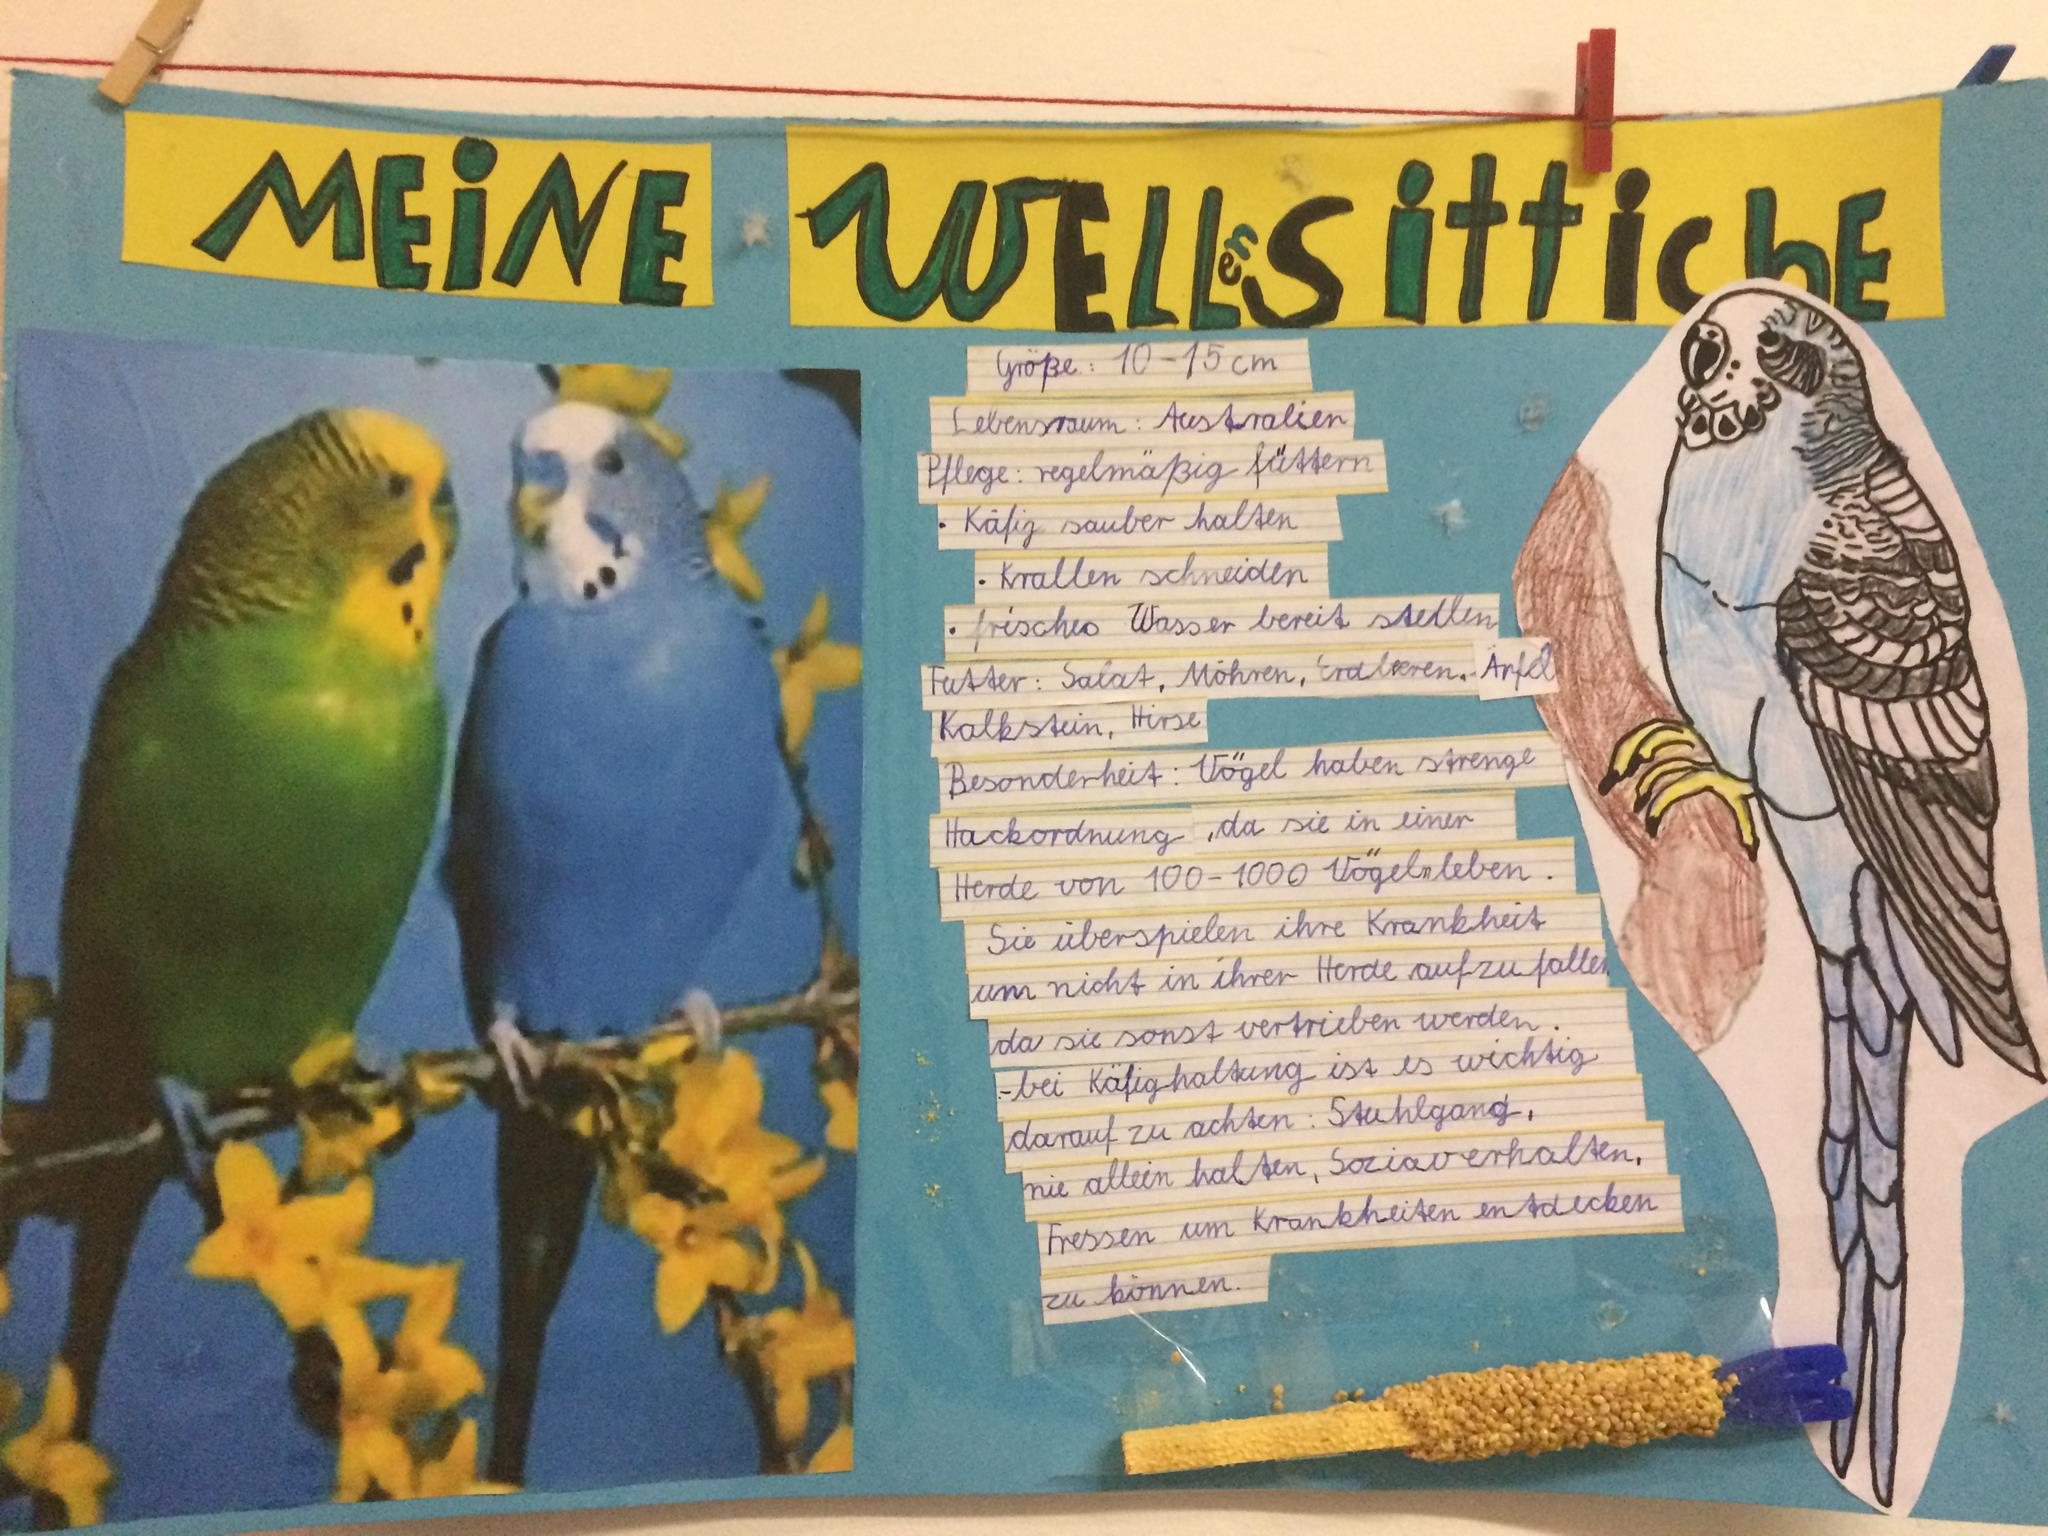 MEiNE WELLenSittichE
Größe: 10-15 cm
Lebensraum: Australien
Pflege: regelmäßig füttern
· Käfig sauber halten
· Krallen schneiden
· frisches Wasser bereit stellen
Futter: Salat, Möhren, Erdbeeren, Äpfel
Kalkstein, Hirse
Besonderheit: Vögel haben strenge
Hackordnung, da sie in einer
Herde von 100-1000 Vögeln leben.
Sie überspielen ihre Krankheit
um nicht in ihrer Herde aufzufallen
da sie sonst vertrieben werden.
-bei Käfighaltung ist es wichtig
darauf zu achten: Stuhlgang,
nie allein halten, Soziaverhalten,
Fressen um Krankheiten entdecken
zu können.